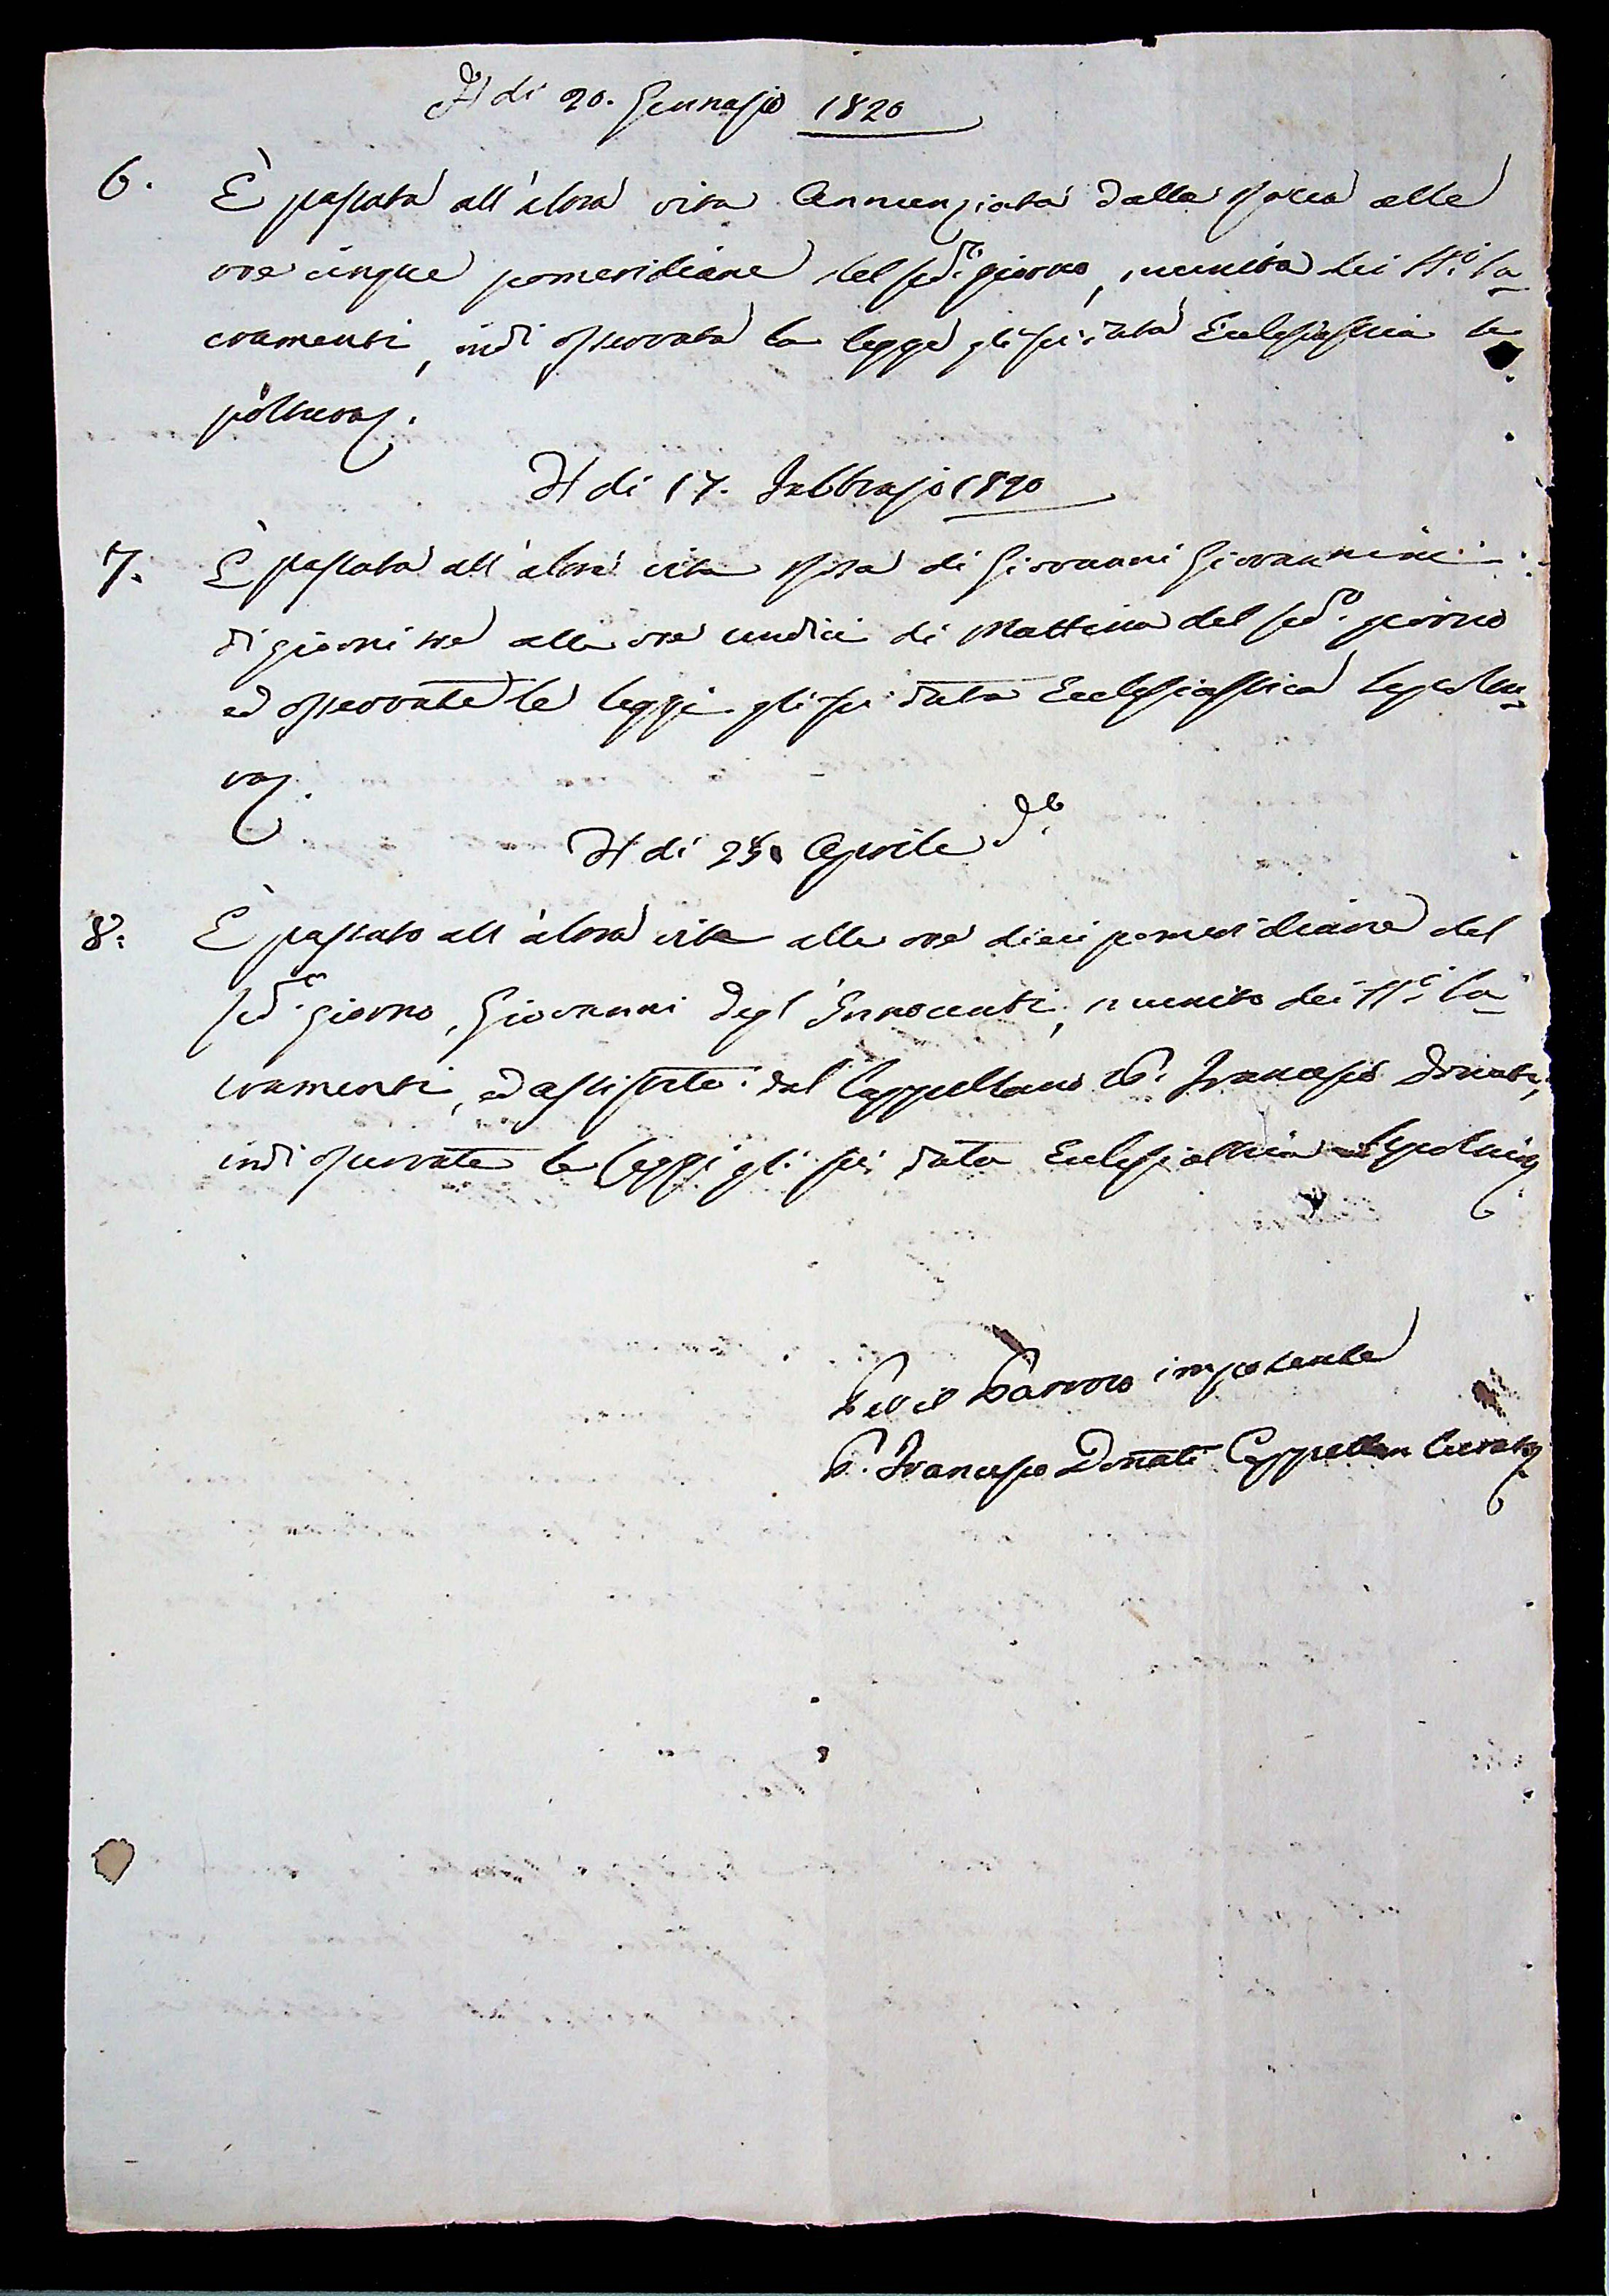 A dì 20. Gennajo 1820
6. È passata all'altra vita Annunziata dalla Rocca alle
ore cinque pomeridiane del sud.o giorno, munita dei SS.i Sa=
cramenti, indi osservata la legge gli fù data Ecclesiastica Se
poltura.
A dì 17. Febbrajo 1820
7. È passata all'altra vita Rosa di Giovanni Giovannini
di giorni tre alle ore undici di Mattina del sud.o giorno
ed osservate le leggi gli fu data Ecclesiastica Sepoltu=
ra.
A dì Aprile d.o
8. È passato all'altra vita alle ore dieci pomeridiane del
sud.o giorno, Giovanni degl'Innocenti, munito dei SS.i Sa=
cramenti, ed assistito dal Cappellano P. Francesco Donati,
indi osservate le leggi gli fù data Ecclesiastica Sepoltura
Per il Parroco impotente
P. Francesco Donati Cappellan Curato